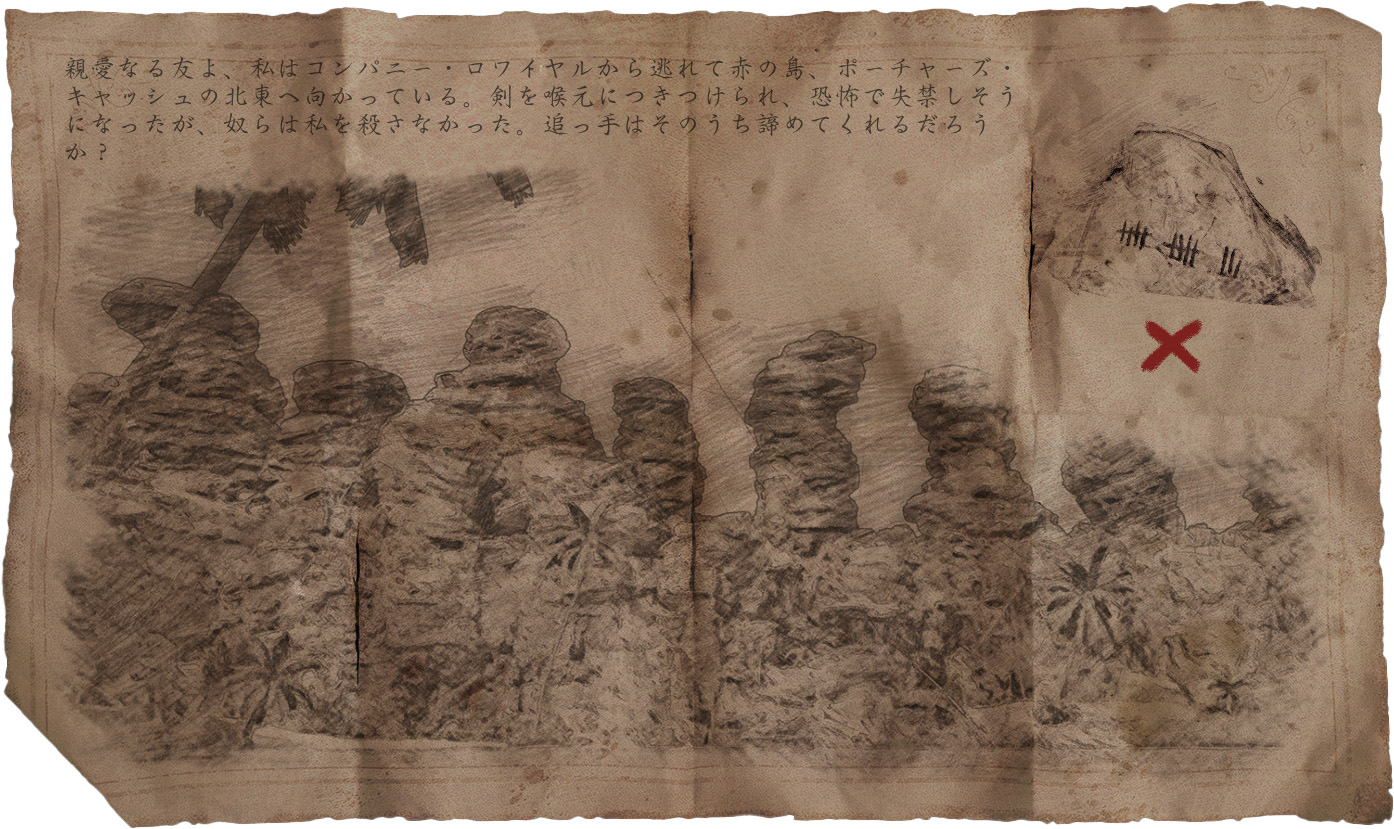 親愛なる友よ、私はコンパニー・ロワイヤルから逃れて赤の島、ポーチャーズ・
キャッシュの北東へ向かっている。剣を喉元につきつけられ、恐怖で失禁しそう
になったが、奴らは私を殺さなかった。追っ手はそのうち諦めてくれるだろう
か？